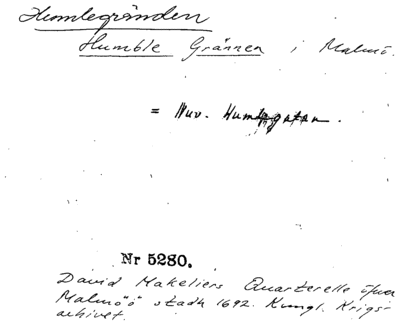 Humlegränden
Humble Grännen i Malmö.
= Nuv. Humlegatan.
Nr 5280.
David Makeliers Quarterelle öfver
Malmöö stadh 1692. Kungl. Krigs-
arkivet.